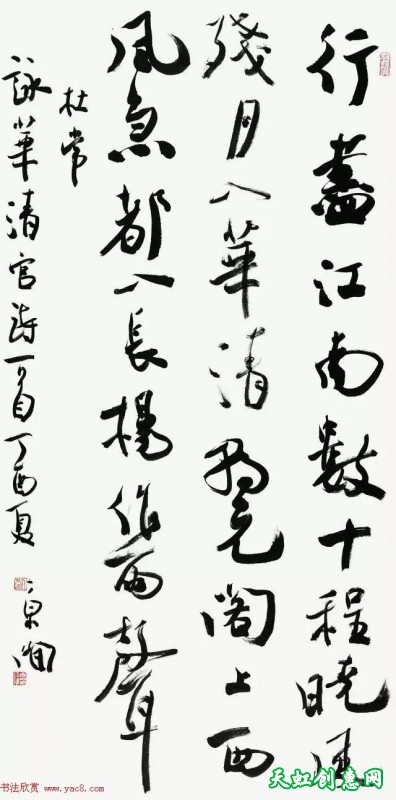 行盡江南數十程曉風
殘月入華清朝元閣上西
風急都入長楊作雨聲
杜常
詠華清宮詩一首丁酉夏
书法欣赏 www.yac8.com
天虹创意网